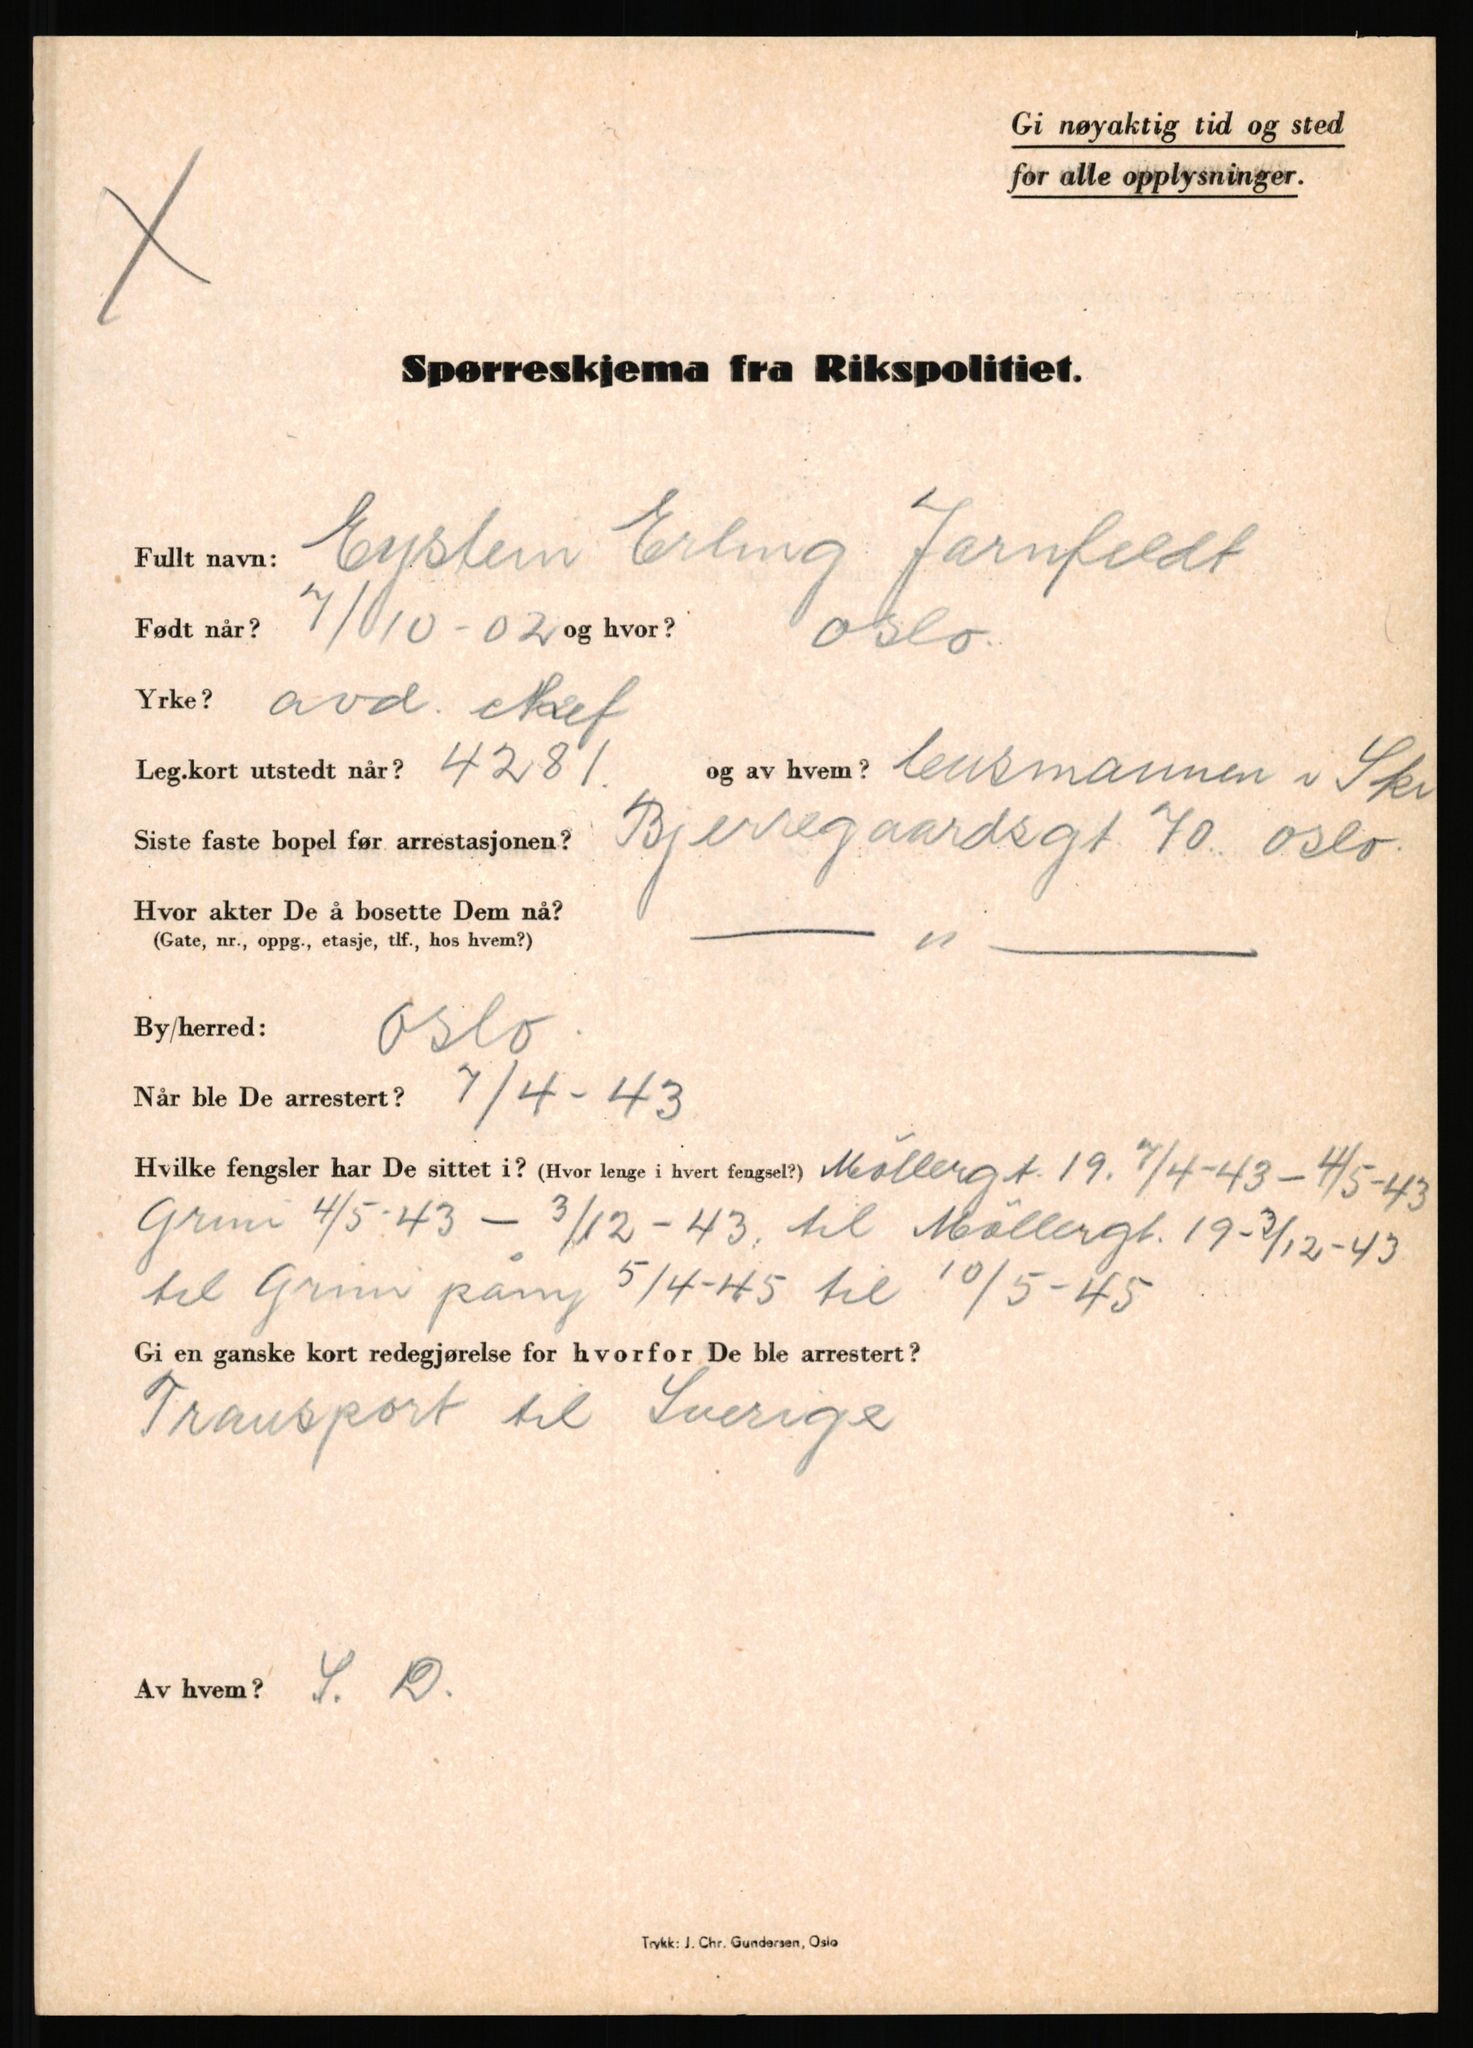 Gi nøyaktig tid og sted
for alle opplysninger.
X
Spørreskjema fra Rikspolitiet.
Fullt navn: Eystein Erling Jarnfeldt
Født når? 7/10-02 og hvor? Oslo.
Yrke? avd. sjef
Leg.kort utstedt når? 4281. og av hvem? lensmannen i Ski
Siste faste bopel før arrestasjonen? Bjerregaardsgt 70. Oslo.
Hvor akter De å bosette Dem nå?
(Gate, nr., oppg., etasje, tlf., hos hvem?) — " —
By/herred: Oslo.
Når ble De arrestert? 7/4-43
Hvilke fengsler har De sittet i? (Hvor lenge i hvert fengsel?) Möllergt. 19. 7/4-43 – 4/5-43
Grini 4/5-43 – 3/12-43, til Möllergt. 19-3/12-43
til Grini påny 5/4-45 til 10/5-45
Gi en ganske kort redegjørelse for hvorfor De ble arrestert?
Transport til Sverige
Av hvem? S. D.
Trykk: J. Chr. Gundersen, Oslo